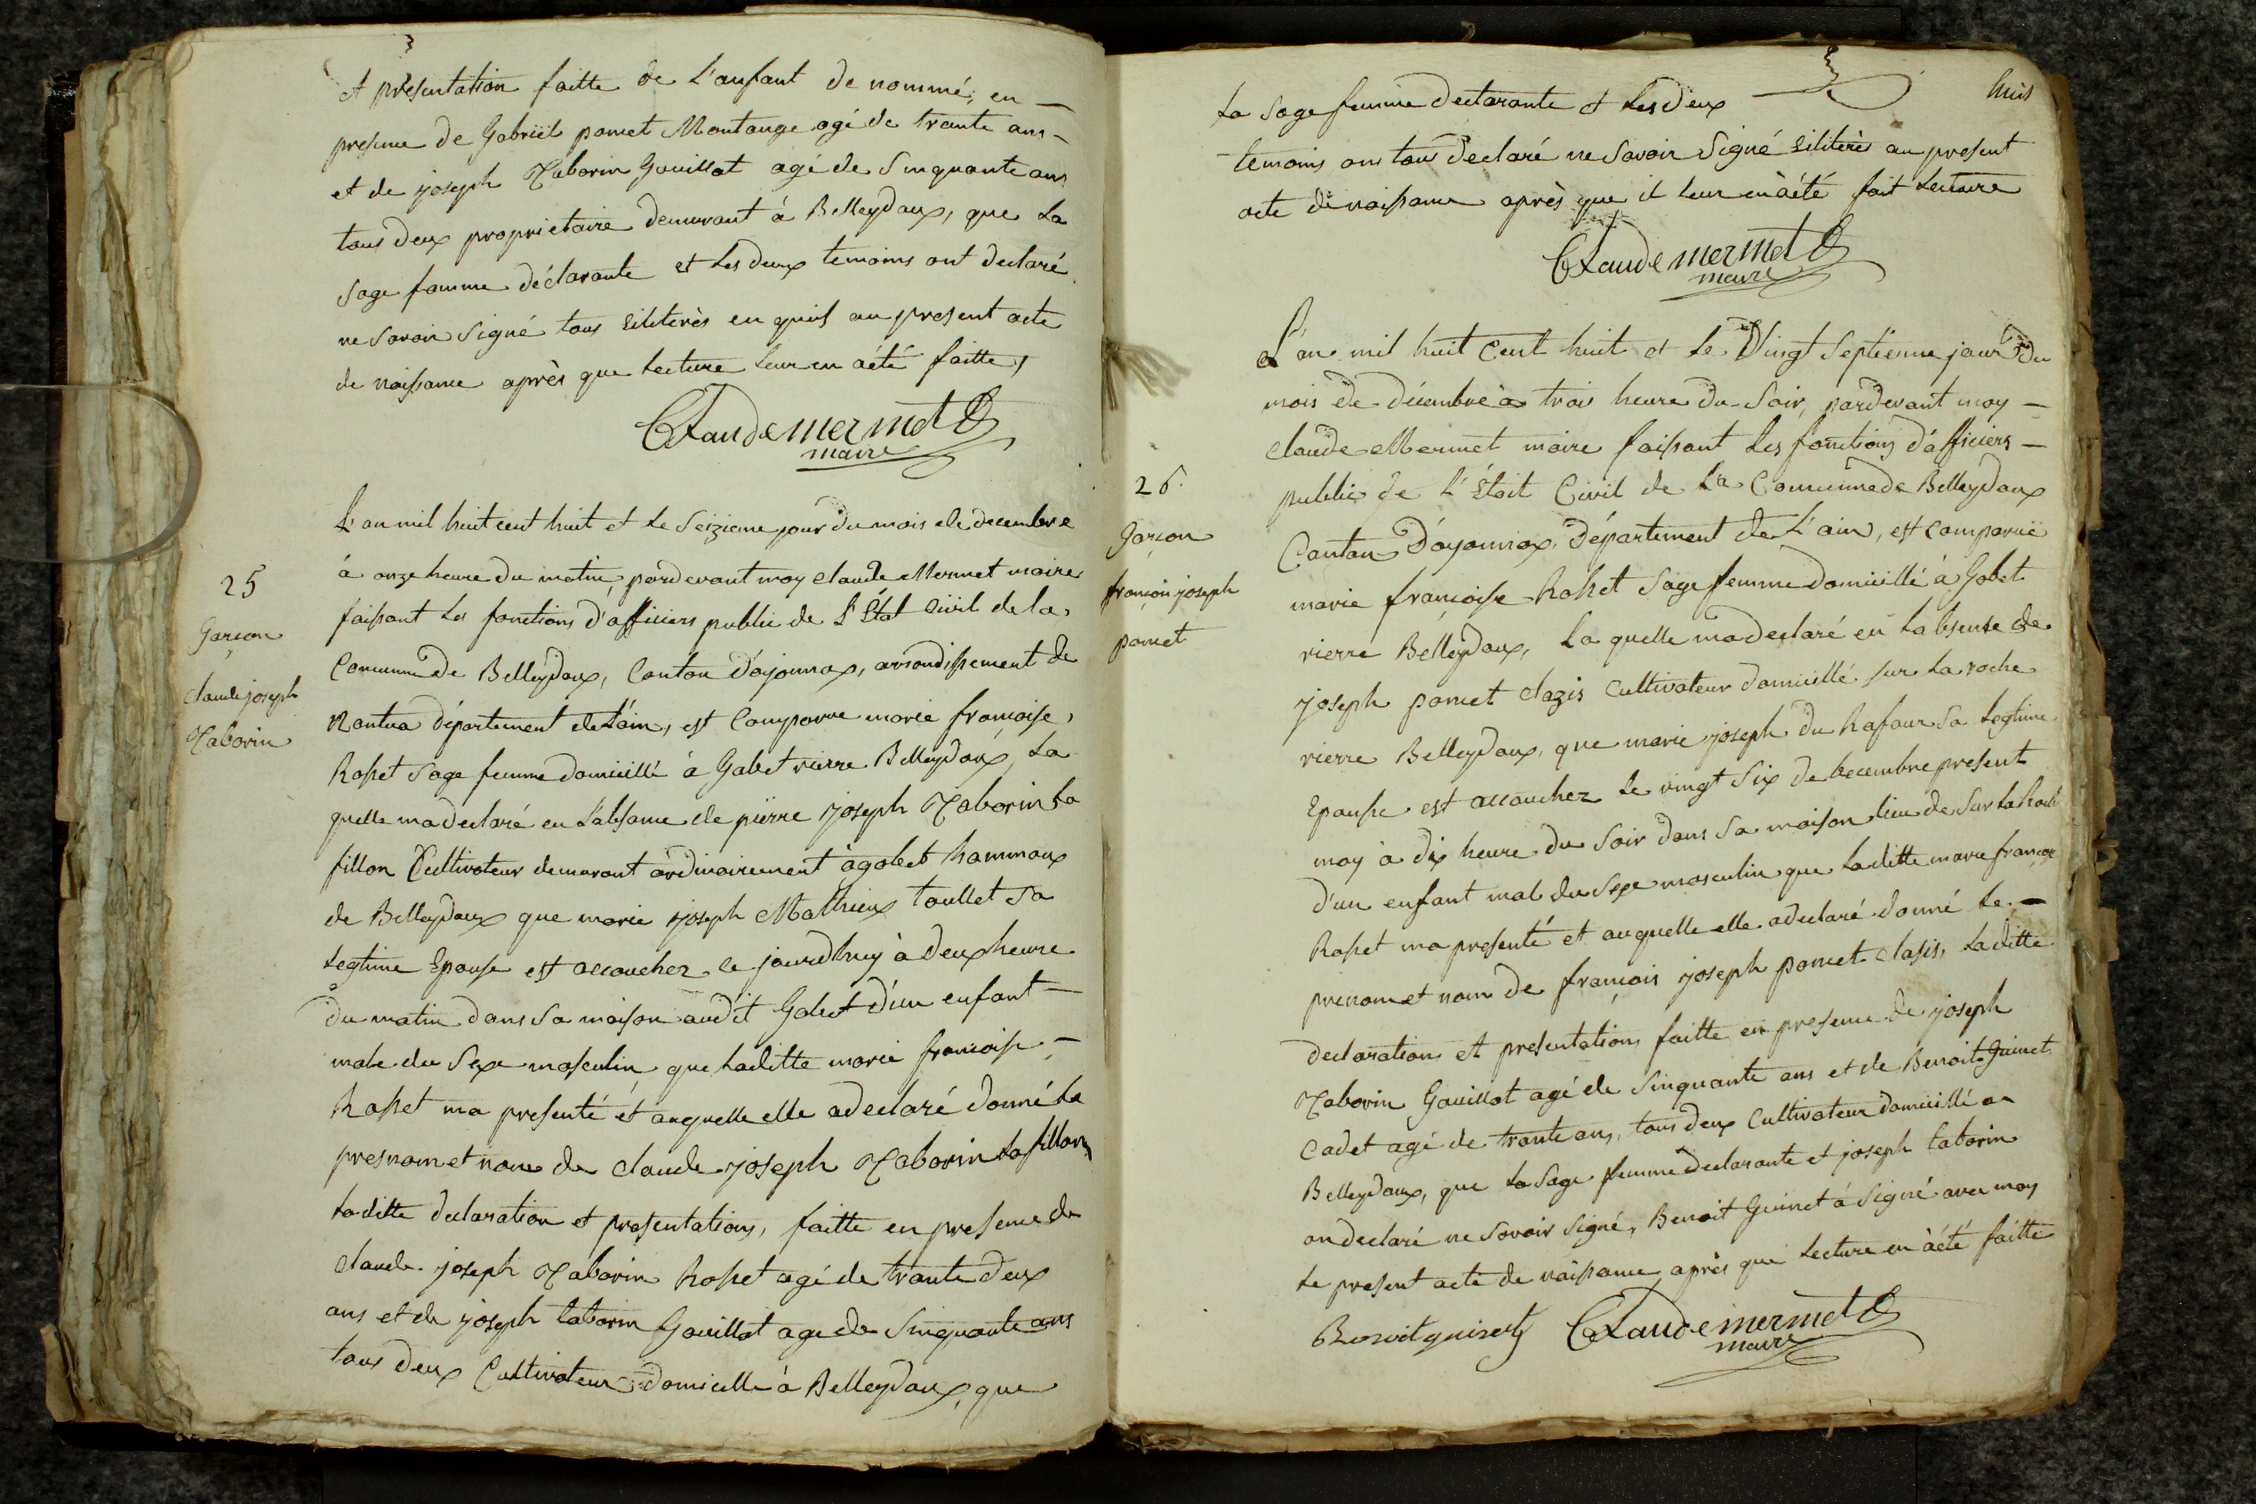 et présentation faitte de L'anfant de nommé, en
presence de Gabriël pomet Montange agé de trante ans
et de joseph Taborin Gouillot agé de Sinquante ans
tous deux proprietaire demurant à Belleydoux, que La
Sage famme déclarante et Les deux temoins ont declaré
ne Savoir Signé tous siliterès en quis au present acte
de naissance après que Lecture Leur en aété faitte,
Claude mermet
maire
L'an mil huit cent huit et Le Seizieme jour du mois de decembre
25
à onze heure du matin, pardevant moy claude Mermet maire
faissant Les fonctions d'afficiers public de L'État Civil de la
Garcon
Commune de Belleydoux, Canton d'ojonnax, arrondissement de
claude joseph
Nantua département de L'ain, est Comparue marie francoise
Taborin
Rosset Sage femme domicillé à Gobet rierre Belleydoux, La
quelle ma declaré en L'absance de pierre joseph Taborin La
fillon Cultivateur demurant ordinairement à gobet hammaux
de Belleydoux que marie joseph Mathieux Toullet Sa
Legtime Epouse est accoucher ce jourdhuy à deux heure
du matin dans Sa maison audit Gobet d'un enfant
male du Sexe masculin que Laditte marie francoise
Rosset ma presenté et auquelle elle adeclaré donné Le
presnom et nom de claude joseph Taborin La fillon
Laditte declaration et presentations, faitte en presence de
claude joseph Taborin Rosset agé de trante deux
ans et de joseph taborin Gouillot age de Sinquante ans
tous deux Cultivateur domicelle à Belleydoux, que
huit
La Sage femme declarante et Les deux
temoins ont tous declaré ne Savoir Signé siliterès au present
acte de naissance après que il Leur en àété fait Lecture
Claude mermet
maire
L'an mil huit Cent huit et Le Vingt Septienne jour du
mois de décembre à trois heure du Soir, pardevant moy
claude Mermet maire faissant Les fonctions d'afficiers
26.
public de L'État Civil de La Commune de Belleydoux
Garcon
Canton D'oyonnax, Département de L'ain, est Comparuë
françois joseph
marie françoise Rosset Sage femme domicillé à Gobet
pomet
rierre Belleydoux, La quelle ma declaré en Labsense de
joseph pomet clazis Cultivateur domicillé Sur La roche
rierre Belleydoux, que marie joseph du Rafour Sa Legtime
Epousse est accoucher Le vingt Six de decembre present
moy à dix heure du Soir dans Sa maison Lieu de Sur La Roch
d'un enfant mal du Sexe masculin que Laditte marie françoise
Rosset ma presenté et auquelle elle adeclaré donné Le
prenom et nom de françois joseph pomet clasis, Laditte
declarations et presentations faitte en presence de joseph
Taborin Gouillot agé de Sinquante ans et de Benoit Guinet
Cadet agé de trante ans, tous deux Cultivateur domicillé a
Belleydoux, que La Sage femme declarante et joseph taborin
on declaré ne Savoir Signé, Benoit Guinet à Signé avec moy
Le present acte de naissance après que Lecture en àété faitte
Benoit guinet Claude mermet
maire